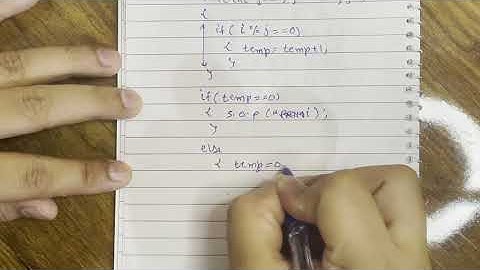 {
if(i%j==0)
{ temp=temp+1;
}
}
if(temp==0)
{ s.o.p(
}
else
{ temp=0